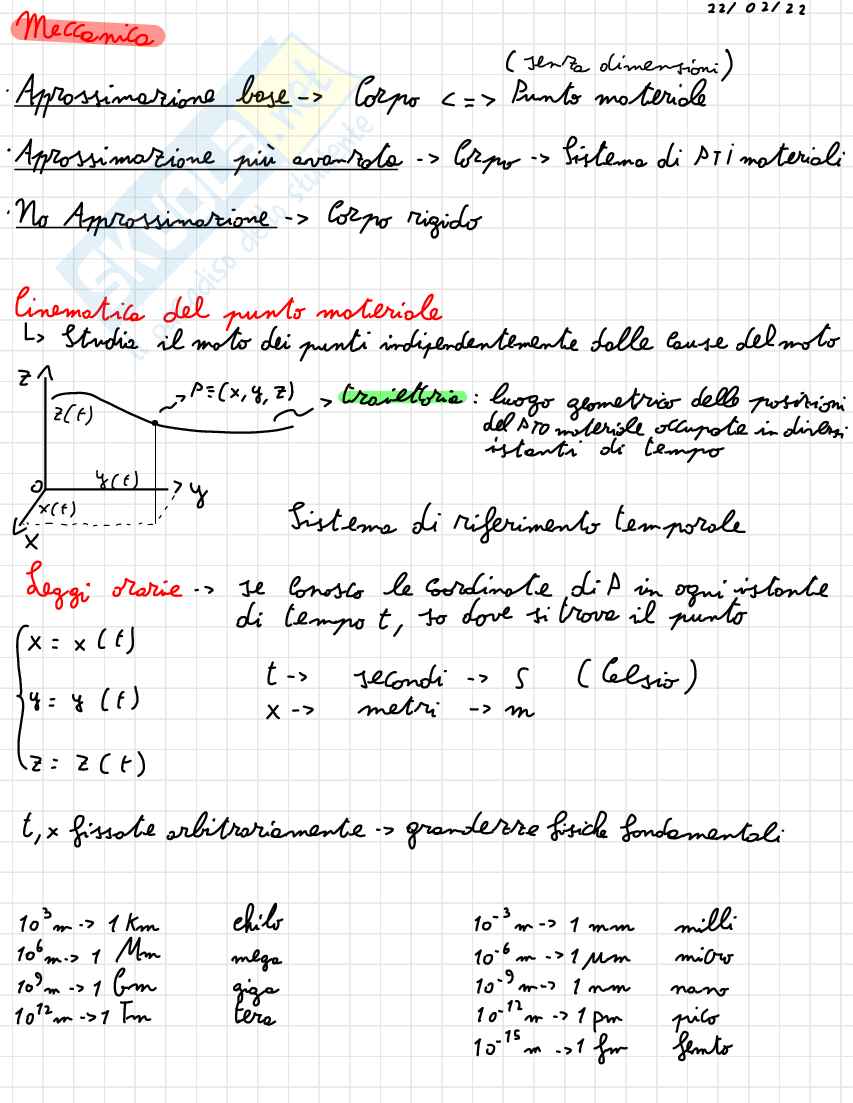 22/02/22
Meccanica
(senza dimensioni)
· Approssimazione base -> Corpo <=> Punto materiale
· Approssimazione più avanzata -> Corpo -> Sistema di PTi materiali
· No Approssimazione -> Corpo rigido
SKUOLA.net
il paradiso dello studente
Cinematica del punto materiale
↳ Studia il moto dei punti indipendentemente dalle cause del moto
z
z(t)
P≡(x, y, z)
-> traiettoria : luogo geometrico delle posizioni
del PTO materiale occupate in diversi
istanti di tempo
O
y(t)
y
x(t)
x
Sistema di riferimento temporale
Leggi orarie -> se conosco le coordinate di P in ogni istante
di tempo t, so dove si trova il punto
x = x (t)
y = y (t)
z = z (t)
t -> secondi -> s (Celsio)
x -> metri -> m
t, x fissate arbitrariamente -> grandezze fisiche fondamentali
10³ m -> 1 Km chilo
10⁶ m -> 1 Mm mega
10⁹ m -> 1 Gm giga
10¹² m -> 1 Tm tera
10⁻³ m -> 1 mm milli
10⁻⁶ m -> 1 μm micro
10⁻⁹ m -> 1 nm nano
10⁻¹² m -> 1 pm pico
10⁻¹⁵ m -> 1 fm femto